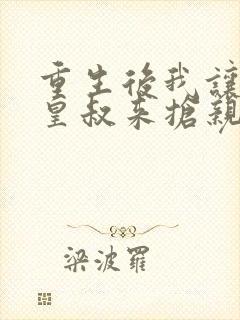 重生後我讓
皇叔來搶親
梁波羅